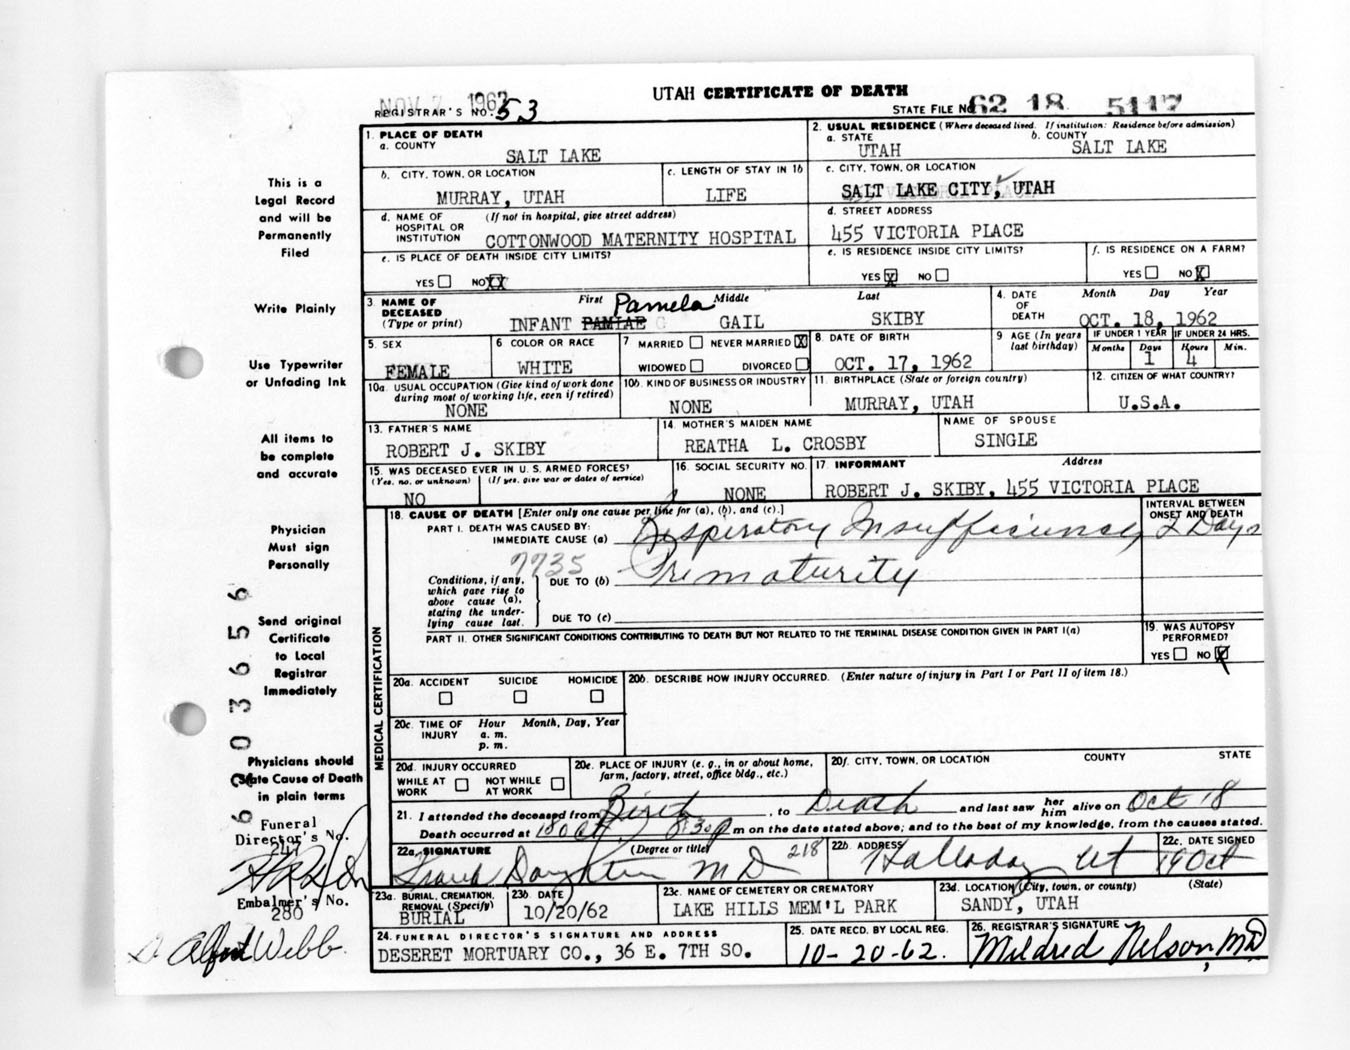 UTAH CERTIFICATE OF DEATH
NOV 7 1962
REGISTRAR'S NO. 53
STATE FILE NO. 62 18 5117
1. PLACE OF DEATH
a. COUNTY
SALT LAKE
2. USUAL RESIDENCE (Where deceased lived. If institution: Residence before admission)
a. STATE b. COUNTY
UTAH SALT LAKE
b. CITY, TOWN, OR LOCATION
MURRAY, UTAH
c. LENGTH OF STAY IN 1b
LIFE
c. CITY, TOWN, OR LOCATION
SALT LAKE CITY, UTAH
d. NAME OF HOSPITAL OR INSTITUTION (If not in hospital, give street address)
COTTONWOOD MATERNITY HOSPITAL
d. STREET ADDRESS
455 VICTORIA PLACE
e. IS PLACE OF DEATH INSIDE CITY LIMITS?
YES NO XX
e. IS RESIDENCE INSIDE CITY LIMITS?
YES X NO
f. IS RESIDENCE ON A FARM?
YES NO X
3. NAME OF DECEASED (Type or print)
First Middle Last
Pamela
INFANT PAMLAE G GAIL SKIBY
4. DATE OF DEATH Month Day Year
OCT. 18, 1962
5. SEX
FEMALE
6 COLOR OR RACE
WHITE
7 MARRIED NEVER MARRIED X
WIDOWED DIVORCED
8. DATE OF BIRTH
OCT. 17, 1962
9 AGE (In years last birthday)
IF UNDER 1 YEAR IF UNDER 24 HRS.
Months Days Hours Min.
1 4
10a. USUAL OCCUPATION (Give kind of work done during most of working life, even if retired)
NONE
10b. KIND OF BUSINESS OR INDUSTRY
NONE
11. BIRTHPLACE (State or foreign country)
MURRAY, UTAH
12. CITIZEN OF WHAT COUNTRY?
U.S.A.
13. FATHER'S NAME
ROBERT J. SKIBY
14. MOTHER'S MAIDEN NAME
REATHA L. CROSBY
NAME OF SPOUSE
SINGLE
15. WAS DECEASED EVER IN U. S. ARMED FORCES?
(Yes, no, or unknown) (If yes, give war or dates of service)
NO
16. SOCIAL SECURITY NO.
NONE
17. INFORMANT Address
ROBERT J. SKIBY, 455 VICTORIA PLACE
18. CAUSE OF DEATH [Enter only one cause per line for (a), (b), and (c).]
INTERVAL BETWEEN ONSET AND DEATH
PART I. DEATH WAS CAUSED BY:
IMMEDIATE CAUSE (a) Respiratory Insufficiency 2 Days
7735
Conditions, if any, which gave rise to above cause (a), stating the underlying cause last.
DUE TO (b) Prematurity
DUE TO (c)
PART II. OTHER SIGNIFICANT CONDITIONS CONTRIBUTING TO DEATH BUT NOT RELATED TO THE TERMINAL DISEASE CONDITION GIVEN IN PART I(a)
19. WAS AUTOPSY PERFORMED?
YES NO X
MEDICAL CERTIFICATION
20a. ACCIDENT SUICIDE HOMICIDE
20b. DESCRIBE HOW INJURY OCCURRED. (Enter nature of injury in Part I or Part II of item 18.)
20c. TIME OF INJURY Hour Month, Day, Year
a. m.
p. m.
20d. INJURY OCCURRED
WHILE AT WORK NOT WHILE AT WORK
20e. PLACE OF INJURY (e. g., in or about home, farm, factory, street, office bldg., etc.)
20f. CITY, TOWN, OR LOCATION COUNTY STATE
21. I attended the deceased from Birth, to Death and last saw her him alive on Oct 18
Death occurred at 18 Oct, 8:30 p m on the date stated above; and to the best of my knowledge, from the causes stated.
22a. SIGNATURE (Degree or title)
MD 218
22b. ADDRESS
Holladay Ut
22c. DATE SIGNED
19 Oct
23a. BURIAL, CREMATION, REMOVAL (Specify)
BURIAL
23b. DATE
10/20/62
23c. NAME OF CEMETERY OR CREMATORY
LAKE HILLS MEM'L PARK
23d. LOCATION (City, town, or county) (State)
SANDY, UTAH
24. FUNERAL DIRECTOR'S SIGNATURE AND ADDRESS
DESERET MORTUARY CO., 36 E. 7TH SO.
25. DATE RECD. BY LOCAL REG.
10-20-62.
26. REGISTRAR'S SIGNATURE
Mildred Nelson, MD
This is a
Legal Record
and will be
Permanently
Filed
Write Plainly
Use Typewriter
or Unfading Ink
All items to
be complete
and accurate
Physician
Must sign
Personally
Send original
Certificate
to Local
Registrar
Immediately
Physicians should
State Cause of Death
in plain terms
Funeral
Director's No.
241
Embalmer's No.
280
Webb.